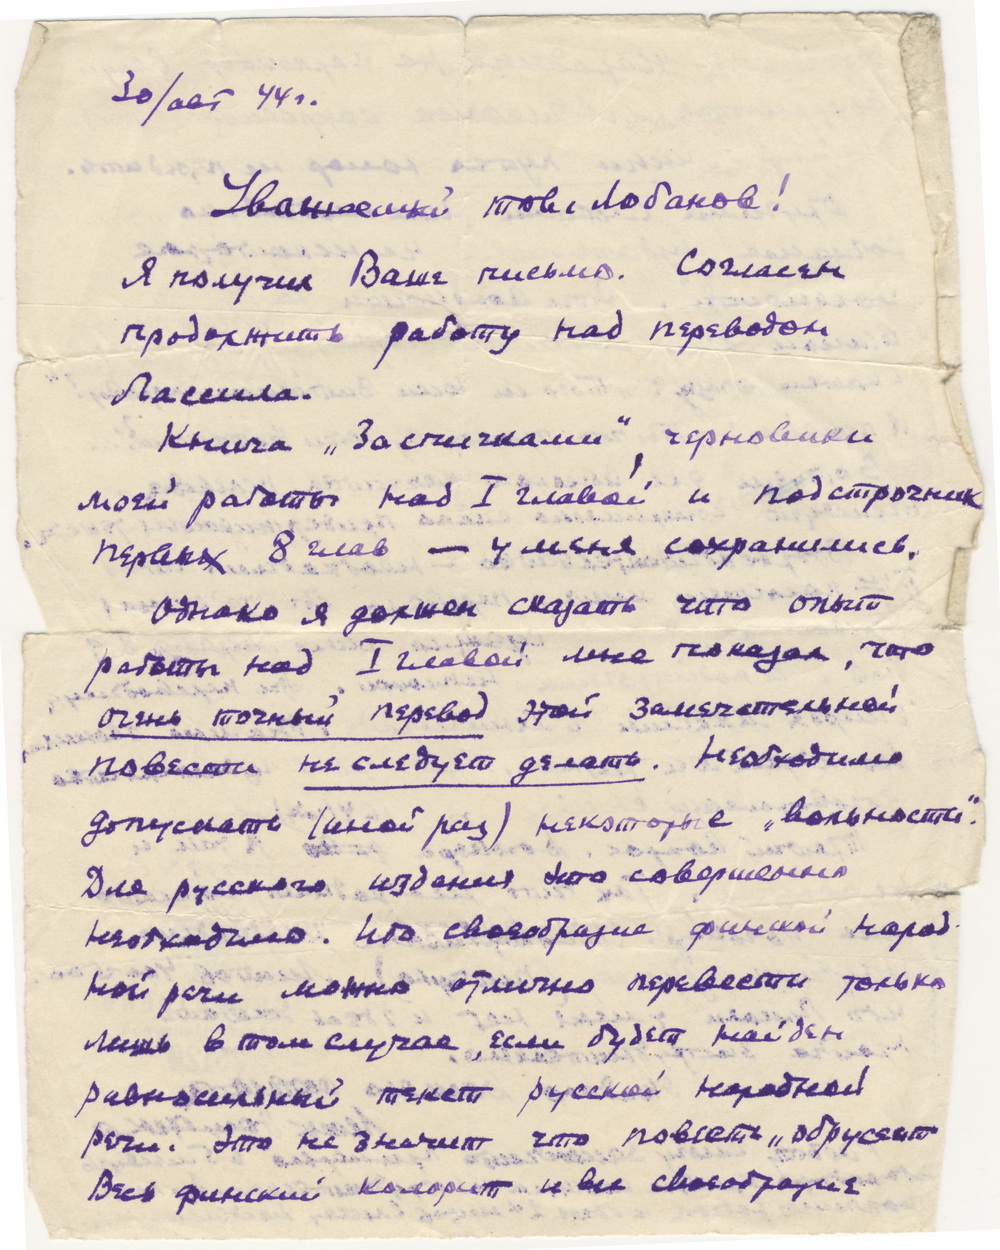 30/авг 44 г.
Уважаемый тов. Лобанов!
Я получил Ваше письмо. Согласен
продолжить работу над переводом
Лассила.
Книга „За спичками“, черновики
моей работы над I главой и подстрочник
первых 8 глав — у меня сохранились.
Однако я должен сказать что опыт
работы над I главой мне показал, что
очень точный перевод этой замечательной
повести не следует делать. Необходимо
допускать (иной раз) некоторые „вольности“.
Для русского издания это совершенно
необходимо. Ибо своеобразие финской народ-
ной речи можно отлично перевести только
лишь в том случае, если будет найден
равносильный текст русской народной
речи. Это не значит что повесть „обрусеет“
Весь финский колорит и все своеобразие